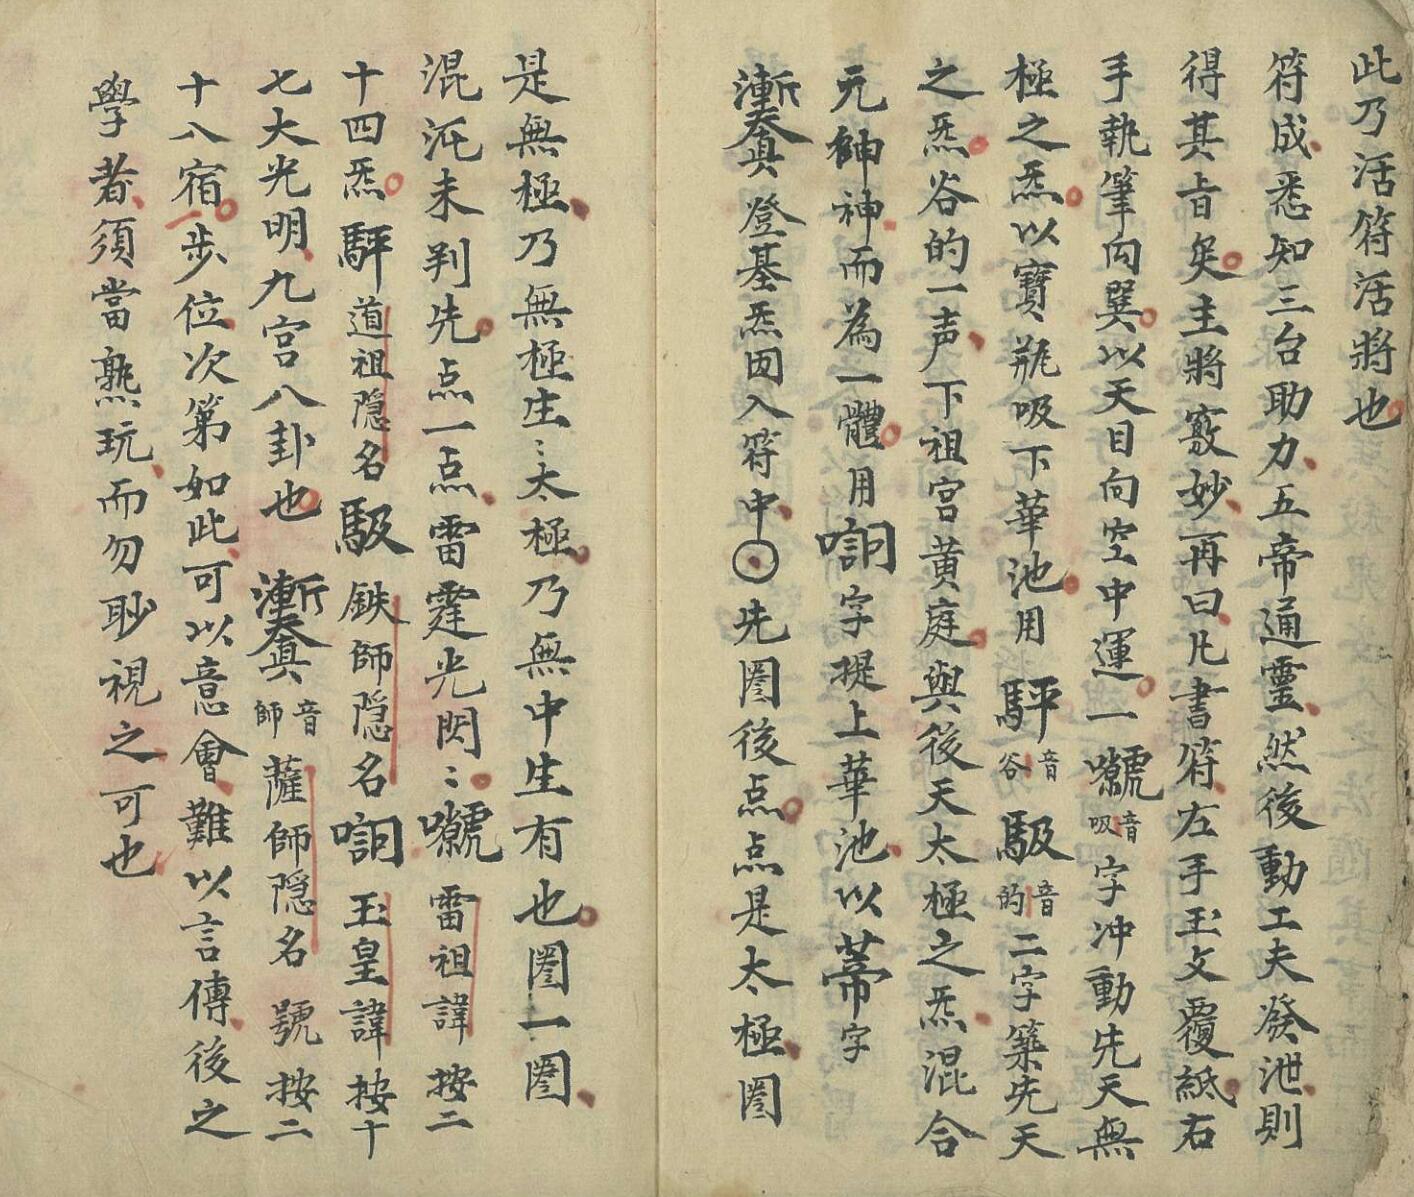 此乃活符活將也
符成悉知三台助力五帝通靈然後動工夫發泄則
得其旨矣主將竅妙再曰凡書符左手玉文覆紙右
手執筆向巽以天目向空中運一嚱音吸字冲動先天無
極之炁以寶瓶吸下華池用䮘音谷馺音的二字築先天
之炁谷的一声下祖宮黄庭與後天太極之炁混合
元神神而為一體用㗢字提上華池以字
登基炁因入符中〇先圈後点点是太極圈
是無極乃無極生〻太極乃無中生有也圈一圈
混沌未判先点一点雷霆光閃〻雷祖諱按二
十四炁道祖隐名馺鉄師隐名㗢玉皇諱按十
七大光明九宮八卦也音師薩師隐名號按二
十八宿步位次第如此可以意會難以言傳後之
學者須當熟玩而勿眇視之可也